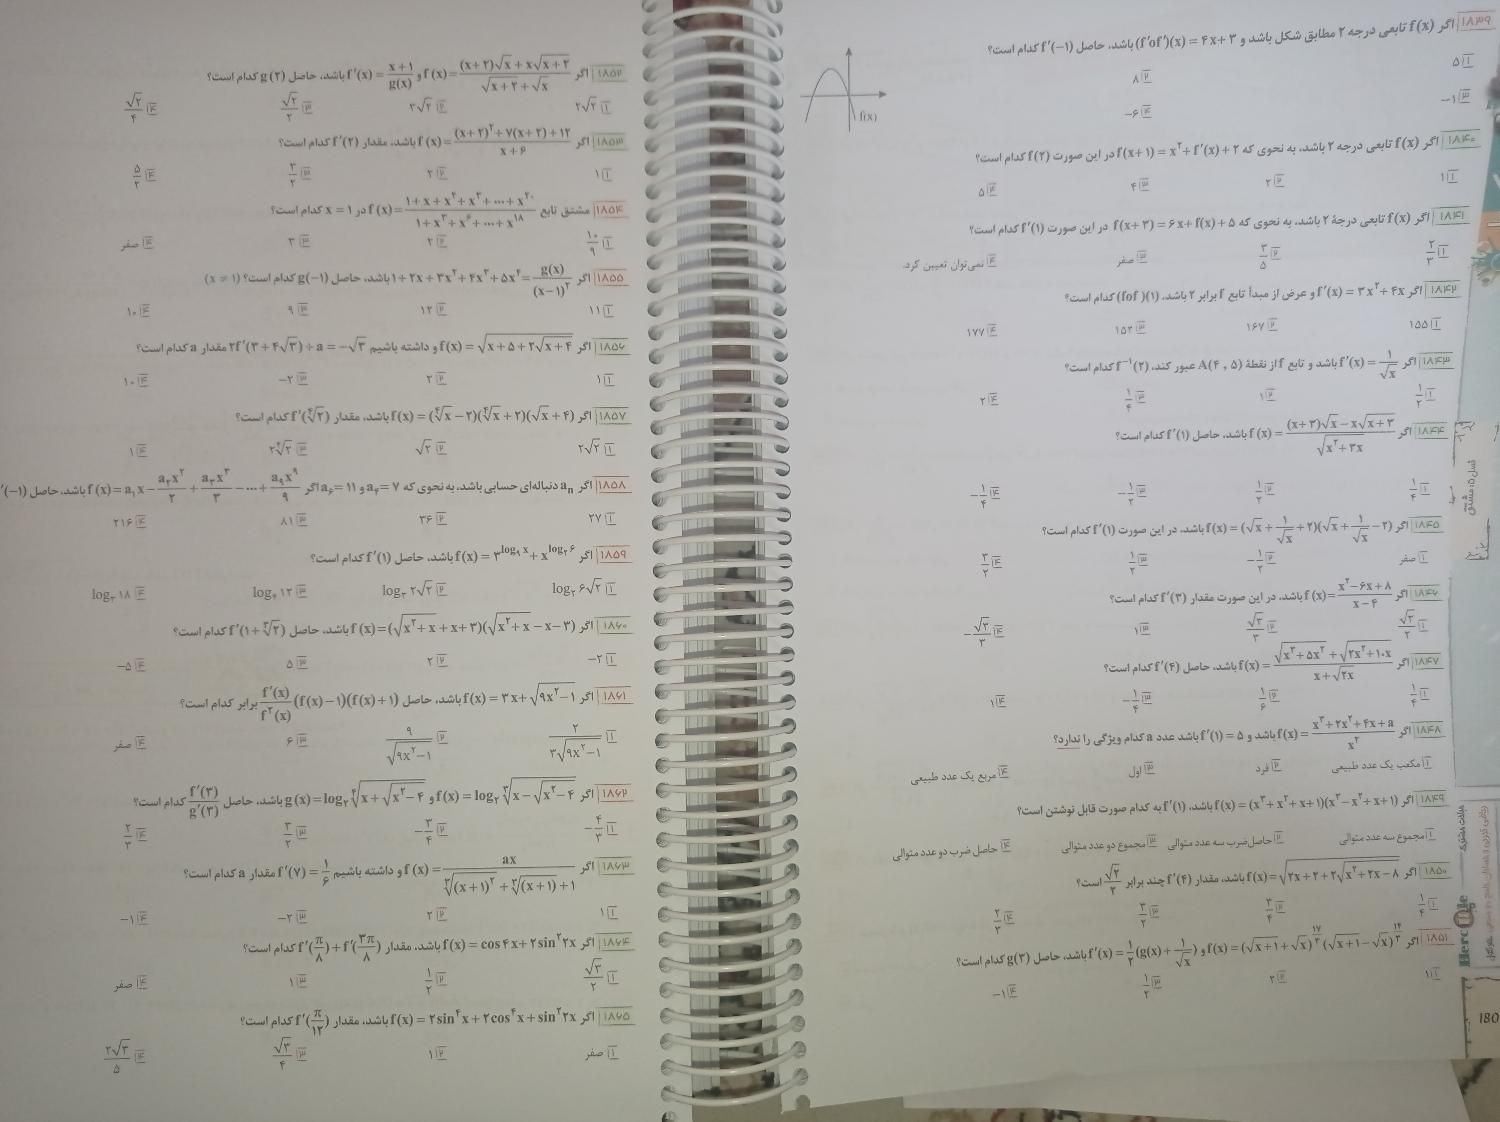 ۱۸۳۹ اگر f(x) تابعی درجه ۲ مطابق شکل باشد و (f′of′)(x) = ۴x+۳ باشد، حاصل f′(−۱) کدام است؟
۱) ۵ ۲) ۸
۳) −۱ ۴) −۶
f(x)
۱۸۴۰ اگر f(x) تابعی درجه ۲ باشد، به نحوی که f(x+۱) = x^۲+f′(x)+۲ در این صورت f(۲) کدام است؟
۱) ۱ ۲) ۲ ۳) ۴ ۴) ۵
۱۸۴۱ اگر f(x) تابعی درجهٔ ۲ باشد، به نحوی که f(x+۳) = ۶x+f(x)+۵ در این صورت f′(۱) کدام است؟
۱) ۲/۳ ۲) ۳/۵ ۳) صفر ۴) نمی‌توان تعیین کرد.
۱۸۴۲ اگر f′(x) = ۳x^۲+۴x و عرض از مبدأ تابع f برابر ۲ باشد، (fof)(۱) کدام است؟
۱) ۱۵۵ ۲) ۱۶۷ ۳) ۱۵۲ ۴) ۱۷۷
۱۸۴۳ اگر f′(x) = ۱/√x باشد و تابع f از نقطهٔ A(۴, ۵) عبور کند، f^−۱(۲) کدام است؟
۱) ۱/۲ ۲) ۱ ۳) ۱/۴ ۴) ۲
۱۸۴۴ اگر f(x) = ((x+۳)√x − x√(x+۳))/√(x^۲+۳x) باشد، حاصل f′(۱) کدام است؟
۱) ۱/۴ ۲) ۱/۲ ۳) −۱/۲ ۴) −۱/۴
۱۸۴۵ اگر f(x) = (√x+۱/√x+۲)(√x+۱/√x−۲) باشد، در این صورت f′(۱) کدام است؟
۱) صفر ۲) −۱/۲ ۳) ۱/۲ ۴) ۳/۲
۱۸۴۶ اگر f(x) = (x^۲−۶x+۸)/(x−۴) باشد، در این صورت مقدار f′(۳) کدام است؟
۱) √۲/۲ ۲) √۳/۳ ۳) ۱ ۴) −√۳/۳
۱۸۴۷ اگر f(x) = (√(x^۳+۵x^۲)+√(۲x^۲+۱۰x))/(x+√(۲x)) باشد، حاصل f′(۴) کدام است؟
۱) ۱/۴ ۲) ۱/۶ ۳) −۱/۴ ۴) ۱
۱۸۴۸ اگر f(x) = (x^۳+۲x^۲+۴x+a)/x^۲ باشد و f′(۱) = ۵ باشد عدد a کدام ویژگی را ندارد؟
۱) مکعب یک عدد طبیعی ۲) فرد ۳) اول ۴) مربع یک عدد طبیعی
۱۸۴۹ اگر f(x) = (x^۳+x^۲+x+۱)(x^۳−x^۲+x+۱) باشد، f′(۱) به کدام صورت قابل نوشتن است؟
۱) مجموع سه عدد متوالی ۲) حاصل‌ضرب سه عدد متوالی ۳) مجموع دو عدد متوالی ۴) حاصل ضرب دو عدد متوالی
۱۸۵۰ اگر f(x) = √(۲x+۲+۲√(x^۲+۲x−۸)) باشد، مقدار f′(۴) چند برابر √۲/۲ است؟
۱) ۱/۴ ۲) ۳/۴ ۳) ۳/۲ ۴) ۲/۳
۱۸۵۱ اگر f(x) = (√(x+۱)+√x)^(۱۷/۳)(√(x+۱)−√x)^(۱۴/۳) و f′(x) = ۱/۲(g(x)+۱/√x) باشد، حاصل g(۳) کدام است؟
۱) ۱ ۲) ۲ ۳) ۱/۲ ۴) −۱
180
۱۸۵۲ اگر f(x) = ((x+۲)√x+x√(x+۲))/(√(x+۲)+√x) و f′(x) = (x+۱)/g(x) باشد، حاصل g(۲) کدام است؟
۱) ۲√۲ ۲) ۳√۲ ۳) √۲/۲ ۴) √۲/۴
۱۸۵۳ اگر f(x) = ((x+۲)^۲+۷(x+۲)+۱۲)/(x+۶) باشد، مقدار f′(۲) کدام است؟
۱) ۱ ۲) ۲ ۳) ۳/۲ ۴) ۵/۲
۱۸۵۴ مشتق تابع f(x) = (۱+x+x^۲+x^۳+…+x^۲۰)/(۱+x^۳+x^۶+…+x^۱۸) در x = ۱ کدام است؟
۱) ۱۰/۹ ۲) ۲ ۳) ۳ ۴) صفر
۱۸۵۵ اگر ۱+۲x+۳x^۲+۴x^۳+۵x^۴ = g(x)/(x−۱)^۲ باشد، حاصل g(−۱) کدام است؟ (x ≠ ۱)
۱) ۱۱ ۲) ۱۲ ۳) ۹ ۴) ۱۰
۱۸۵۶ اگر f(x) = √(x+۵+۲√(x+۴)) و داشته باشیم ۲f′(۳+۴√۳)+a = −√۳ مقدار a کدام است؟
۱) ۱ ۲) ۲ ۳) −۲ ۴) ۱۰
۱۸۵۷ اگر f(x) = (∜x−۲)(∜x+۲)(√x+۴) باشد، مقدار کدام است؟
۱) ۲√۲ ۲) √۲ ۴) ۱
۱۸۵۸ اگر a_n دنباله‌ای حسابی باشد، به نحوی که a_۴ = ۷ و a_۶ = ۱۱ اگر f(x) = a_۱x − a_۲x^۲/۲ + a_۳x^۳/۳ − … + a_۹x^۹/۹ باشد، حاصل ′(−۱)
۱) ۲۷ ۲) ۳۶ ۳) ۸۱ ۴) ۲۱۶
۱۸۵۹ اگر f(x) = ۳^(log_۹ x)+x^(log_۲ ۶) باشد، حاصل f′(۱) کدام است؟
۱) log_۲ ۶√۲ ۲) log_۲ ۲√۲ ۳) log_۲ ۱۲ ۴) log_۲ ۱۸
۱۸۶۰ اگر f(x) = (√(x^۲+x)+x+۳)(√(x^۲+x)−x−۳) باشد، حاصل f′(۱+∛۲) کدام است؟
۱) −۲ ۲) ۲ ۳) ۵ ۴) −۵
۱۸۶۱ اگر f(x) = ۳x+√(۹x^۲−۱) باشد، حاصل f′(x)/f^۲(x) (f(x)−۱)(f(x)+۱) برابر کدام است؟
۱) ۲/(۳√(۹x^۲−۱)) ۲) ۹/√(۹x^۲−۱) ۳) ۶ ۴) صفر
۱۸۶۲ اگر f(x) = log_۲ ∛(x−√(x^۲−۴)) و g(x) = log_۲ ∜(x+√(x^۲−۴)) باشد، حاصل f′(۳)/g′(۳) کدام است؟
۱) −۴/۳ ۲) −۳/۴ ۳) ۳/۲ ۴) ۲/۳
۱۸۶۳ اگر f(x) = ax/(∛(x+۱)^۲+∛(x+۱)+۱) و داشته باشیم f′(۷) = ۱/۶ مقدار a کدام است؟
۱) ۱ ۲) ۲ ۳) −۲ ۴) −۱
۱۸۶۴ اگر f(x) = cos ۴x+۲sin^۲ ۲x باشد، مقدار f′(π/۸)+f′(۳π/۸) کدام است؟
۱) √۳/۲ ۲) ۱/۲ ۳) ۱ ۴) صفر
۱۸۶۵ اگر f(x) = ۲sin^۴ x+۲cos^۴ x+sin^۲ ۲x باشد، مقدار f′(π/۱۲) کدام است؟
۱) صفر ۲) ۱ ۳) √۳/۴ ۴) ۲√۳/۵